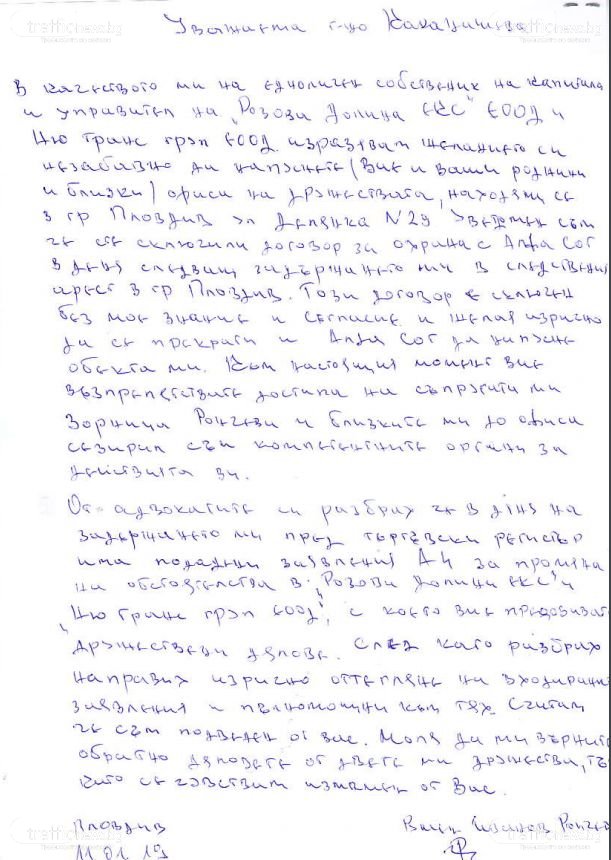 Уважаема г-цо Каканашева
В качеството ми на едноличен собственик на капитала
и управител на "Розова Долина ЕКС" ЕООД и
Ню Транс груп ЕООД изразявам желанието си
незабавно да напуснете (Вие и Ваши роднини
и близки) офиса на дружествата, находящ се
в гр Пловдив ул Делянка N 29 Уведомен съм
че сте сключили договор за охрана с Алфа Сот
в деня следващ задържането ми в следствения
арест в гр Пловдив. Този договор е сключен
без мое знание и съгласие и желая изрично
да се прекрати и Алфа Сот да напусне
обекта ми. Към настоящия момент вие
възпрепятствате достъпа на съпругата ми
Зорница Рончева и близките ми до офиса
сезирал съм компетентните органи за
действията ви.
От адвокатите си разбрах че в деня на
задържането ми пред търговски регистър
има подадени заявления А4 за промяна
на обстоятелства в "Розова Долина ЕКС" и
"Ню Транс груп ЕООД", с което вие придобивате
дружествени дялове. След като разбрах
направих изрично оттегляне на входирани
заявления и пълномощни към тях. Считам
че съм подведен от вас. Моля да ми върнете
обратно дяловете от двете ми дружества, тъ
като се чувствам измамен от Вас.
Пловдив Иванов
11 01 19
trafficnews.bg
trafficnews.bg